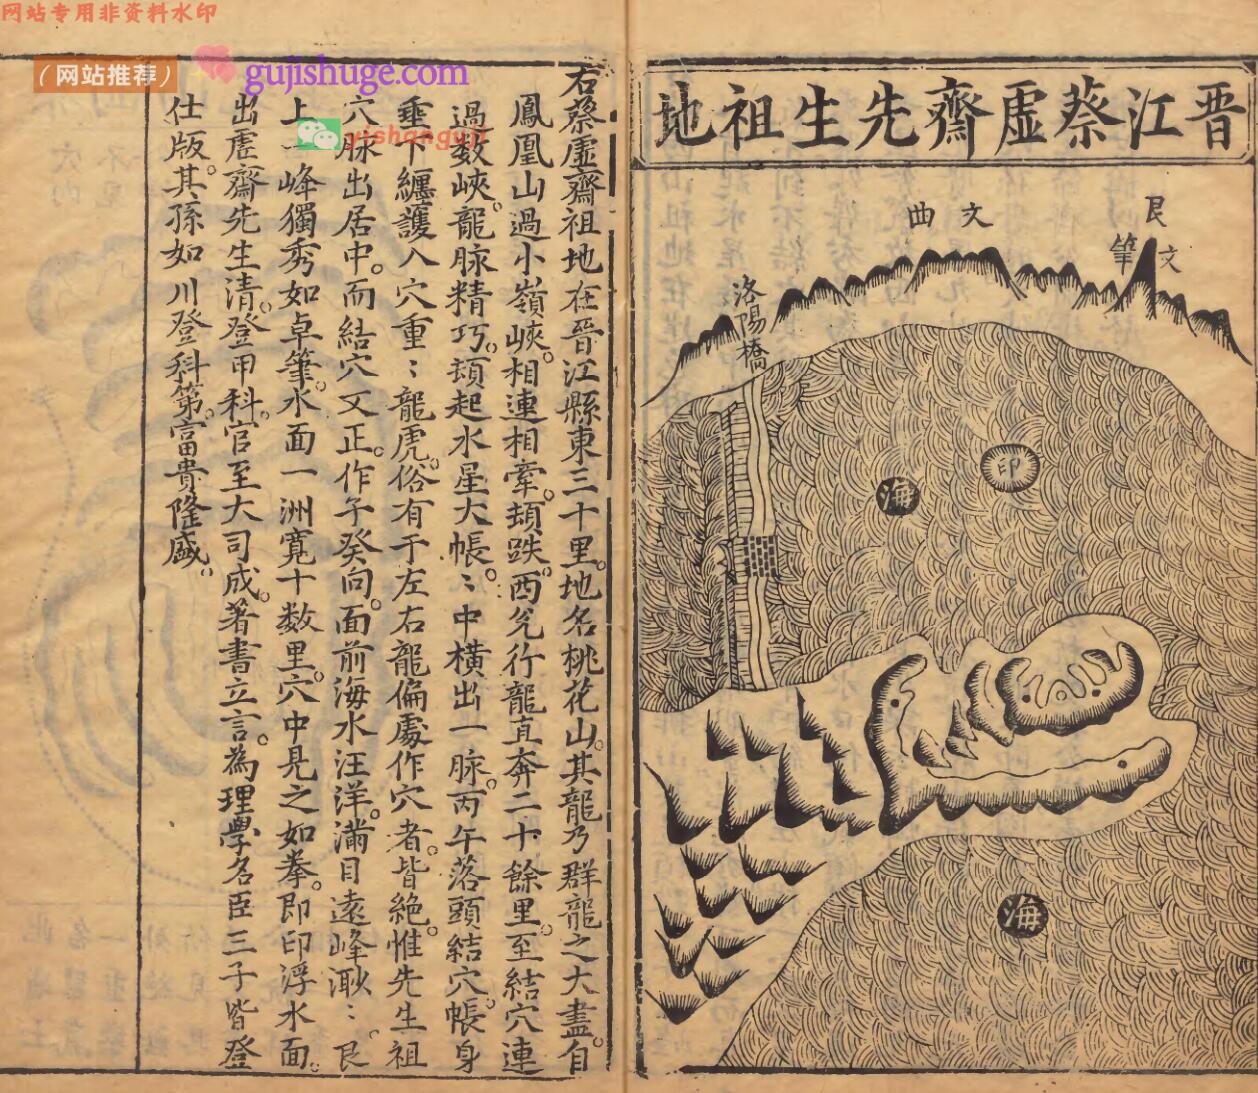 网站专用非资料水印
（网站推荐）
gujishuge.com
yishanguji
晋江蔡虛齋先生祖地
艮
文筆
文曲
洛陽橋
印
海
海
右蔡虛齋祖地在晋江縣東三十里。地名桃花山。其龍乃群龍之大盡。自
鳳凰山過小嶺峽。相連相牽。頓跌。西兌行龍直奔二十餘里。至結穴連
過数峽。龍脉精巧。頓起水星大帳。〻中橫出一脉。丙午落頭結穴。帳身
垂下纏護入穴重〻龍虎。俗有于左右龍偏處作穴者。皆絶。惟先生祖
穴脉出居中。而結穴又正。作子癸向。面前海水汪洋。滿目遠峰濈〻。艮
上一峰獨秀如卓筆。水面一洲寛十数里。穴中見之如拳。即印浮水面。
出虛齋先生清。登甲科。官至大司成。著書立言。為理學名臣三子皆登
仕版。其孫如川登科第。富貴隆盛。